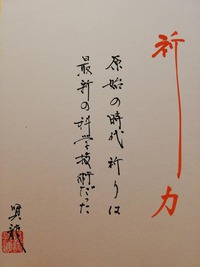 祈力
原始の時代祈りは
最新の科学技術だった